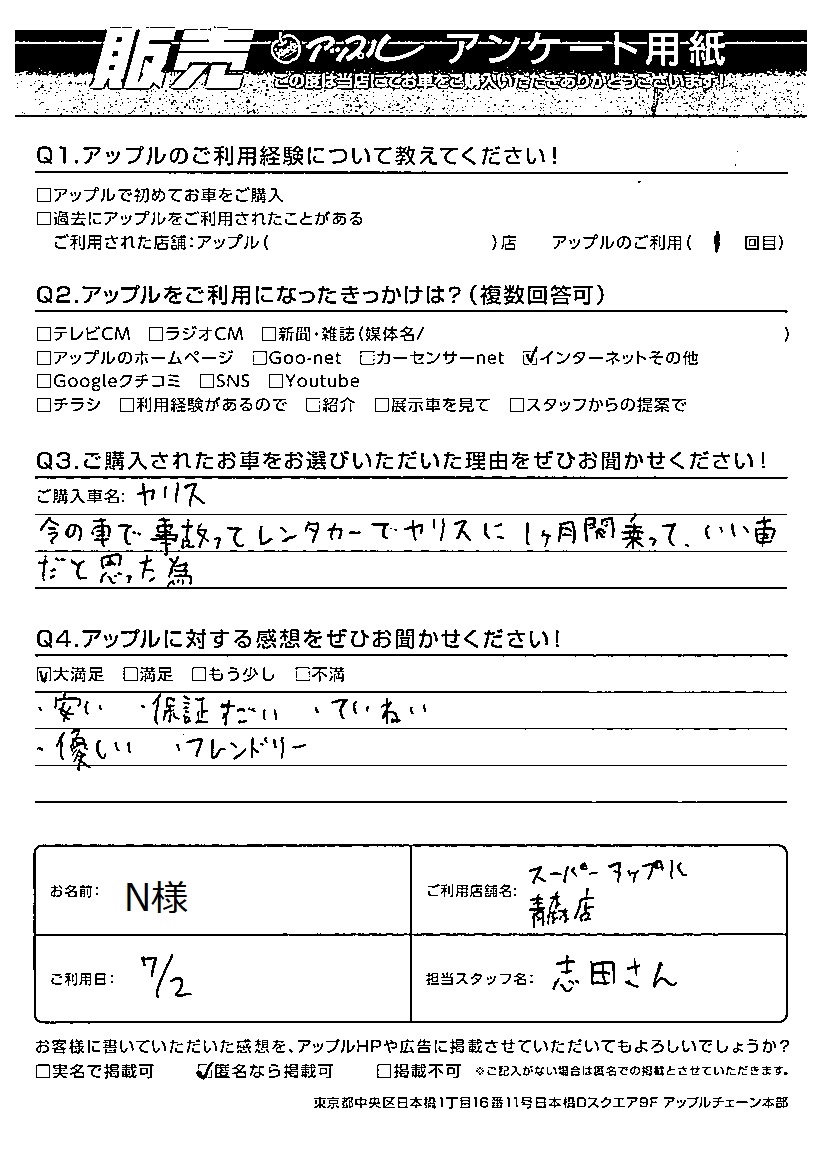 販売 アップル アンケート用紙
この度は当店にてお車をご購入いただきありがとうございます!
Q1.アップルのご利用経験について教えてください!
□アップルで初めてお車をご購入
□過去にアップルをご利用されたことがある
ご利用された店舗:アップル( )店 アップルのご利用( 1 回目)
Q2.アップルをご利用になったきっかけは?(複数回答可)
□テレビCM □ラジオCM □新聞・雑誌(媒体名/ )
□アップルのホームページ □Goo-net □カーセンサーnet ☑インターネットその他
□Googleクチコミ □SNS □Youtube
□チラシ □利用経験があるので □紹介 □展示車を見て □スタッフからの提案で
Q3.ご購入されたお車をお選びいただいた理由をぜひお聞かせください!
ご購入車名: ヤリス
今の車で事故ってレンタカーでヤリスに1ヶ月間乗って、いい車
だと思った為
Q4.アップルに対する感想をぜひお聞かせください!
☑大満足 □満足 □もう少し □不満
・安い ・保証すごい ・ていねい
・優しい ・フレンドリー
お名前: N様
ご利用店舗名: スーパーアップル
青森店
ご利用日: 7/2
担当スタッフ名: 志田さん
お客様に書いていただいた感想を、アップルHPや広告に掲載させていただいてもよろしいでしょうか?
□実名で掲載可 ☑匿名なら掲載可 □掲載不可 ※ご記入がない場合は匿名での掲載とさせていただきます。
東京都中央区日本橋1丁目16番11号日本橋Dスクエア9F アップルチェーン本部